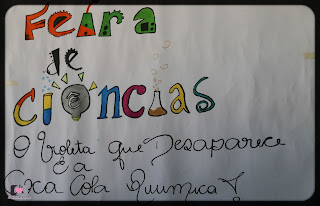 Feira
de
ciências
O Violeta que Desaparece
E a
Coca Cola Química